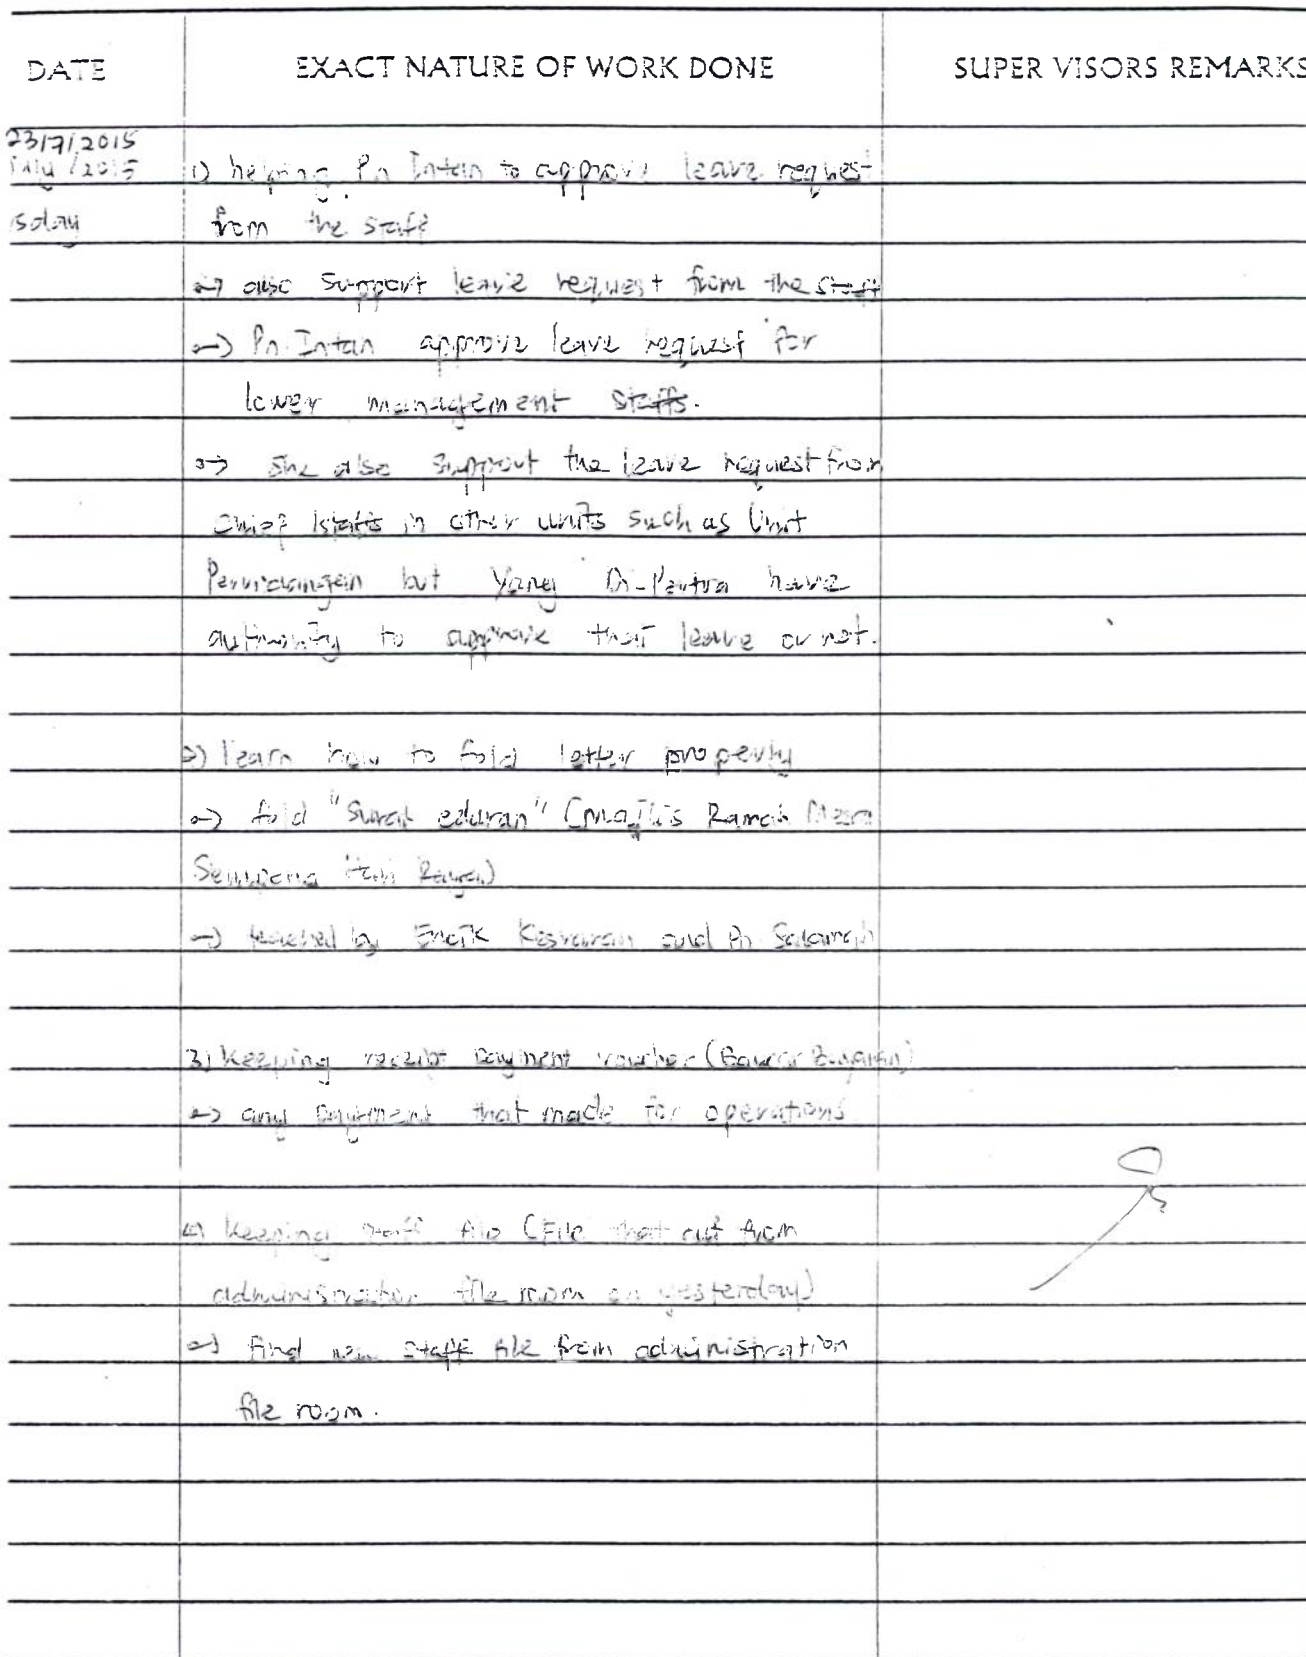 DATE EXACT NATURE OF WORK DONE SUPER VISORS REMARKS
23/7/2015
July /2015 1) helping Pn Intan to approve leave request
sday from the staff
→ also support leave request from the staff
→ Pn. Intan approve leave request for
lower management staffs.
→ she also support the leave request from
chief staffs in other units such as Unit
but Yang Di-Pertua have
authority to approve that leave or not.
2) learn how to fold letter properly
→ fold "Surat edaran" (Majlis Ramah Mesra
Sempena Hari Raya)
→ teached by Encik and Pn Salamah
3) Keeping receipt payment voucher (Baucar Bayaran)
→ any payment that made for operations
4) Keeping staff file (File that out from
administration file room on yesterday)
→ find new staff file from administration
file room.